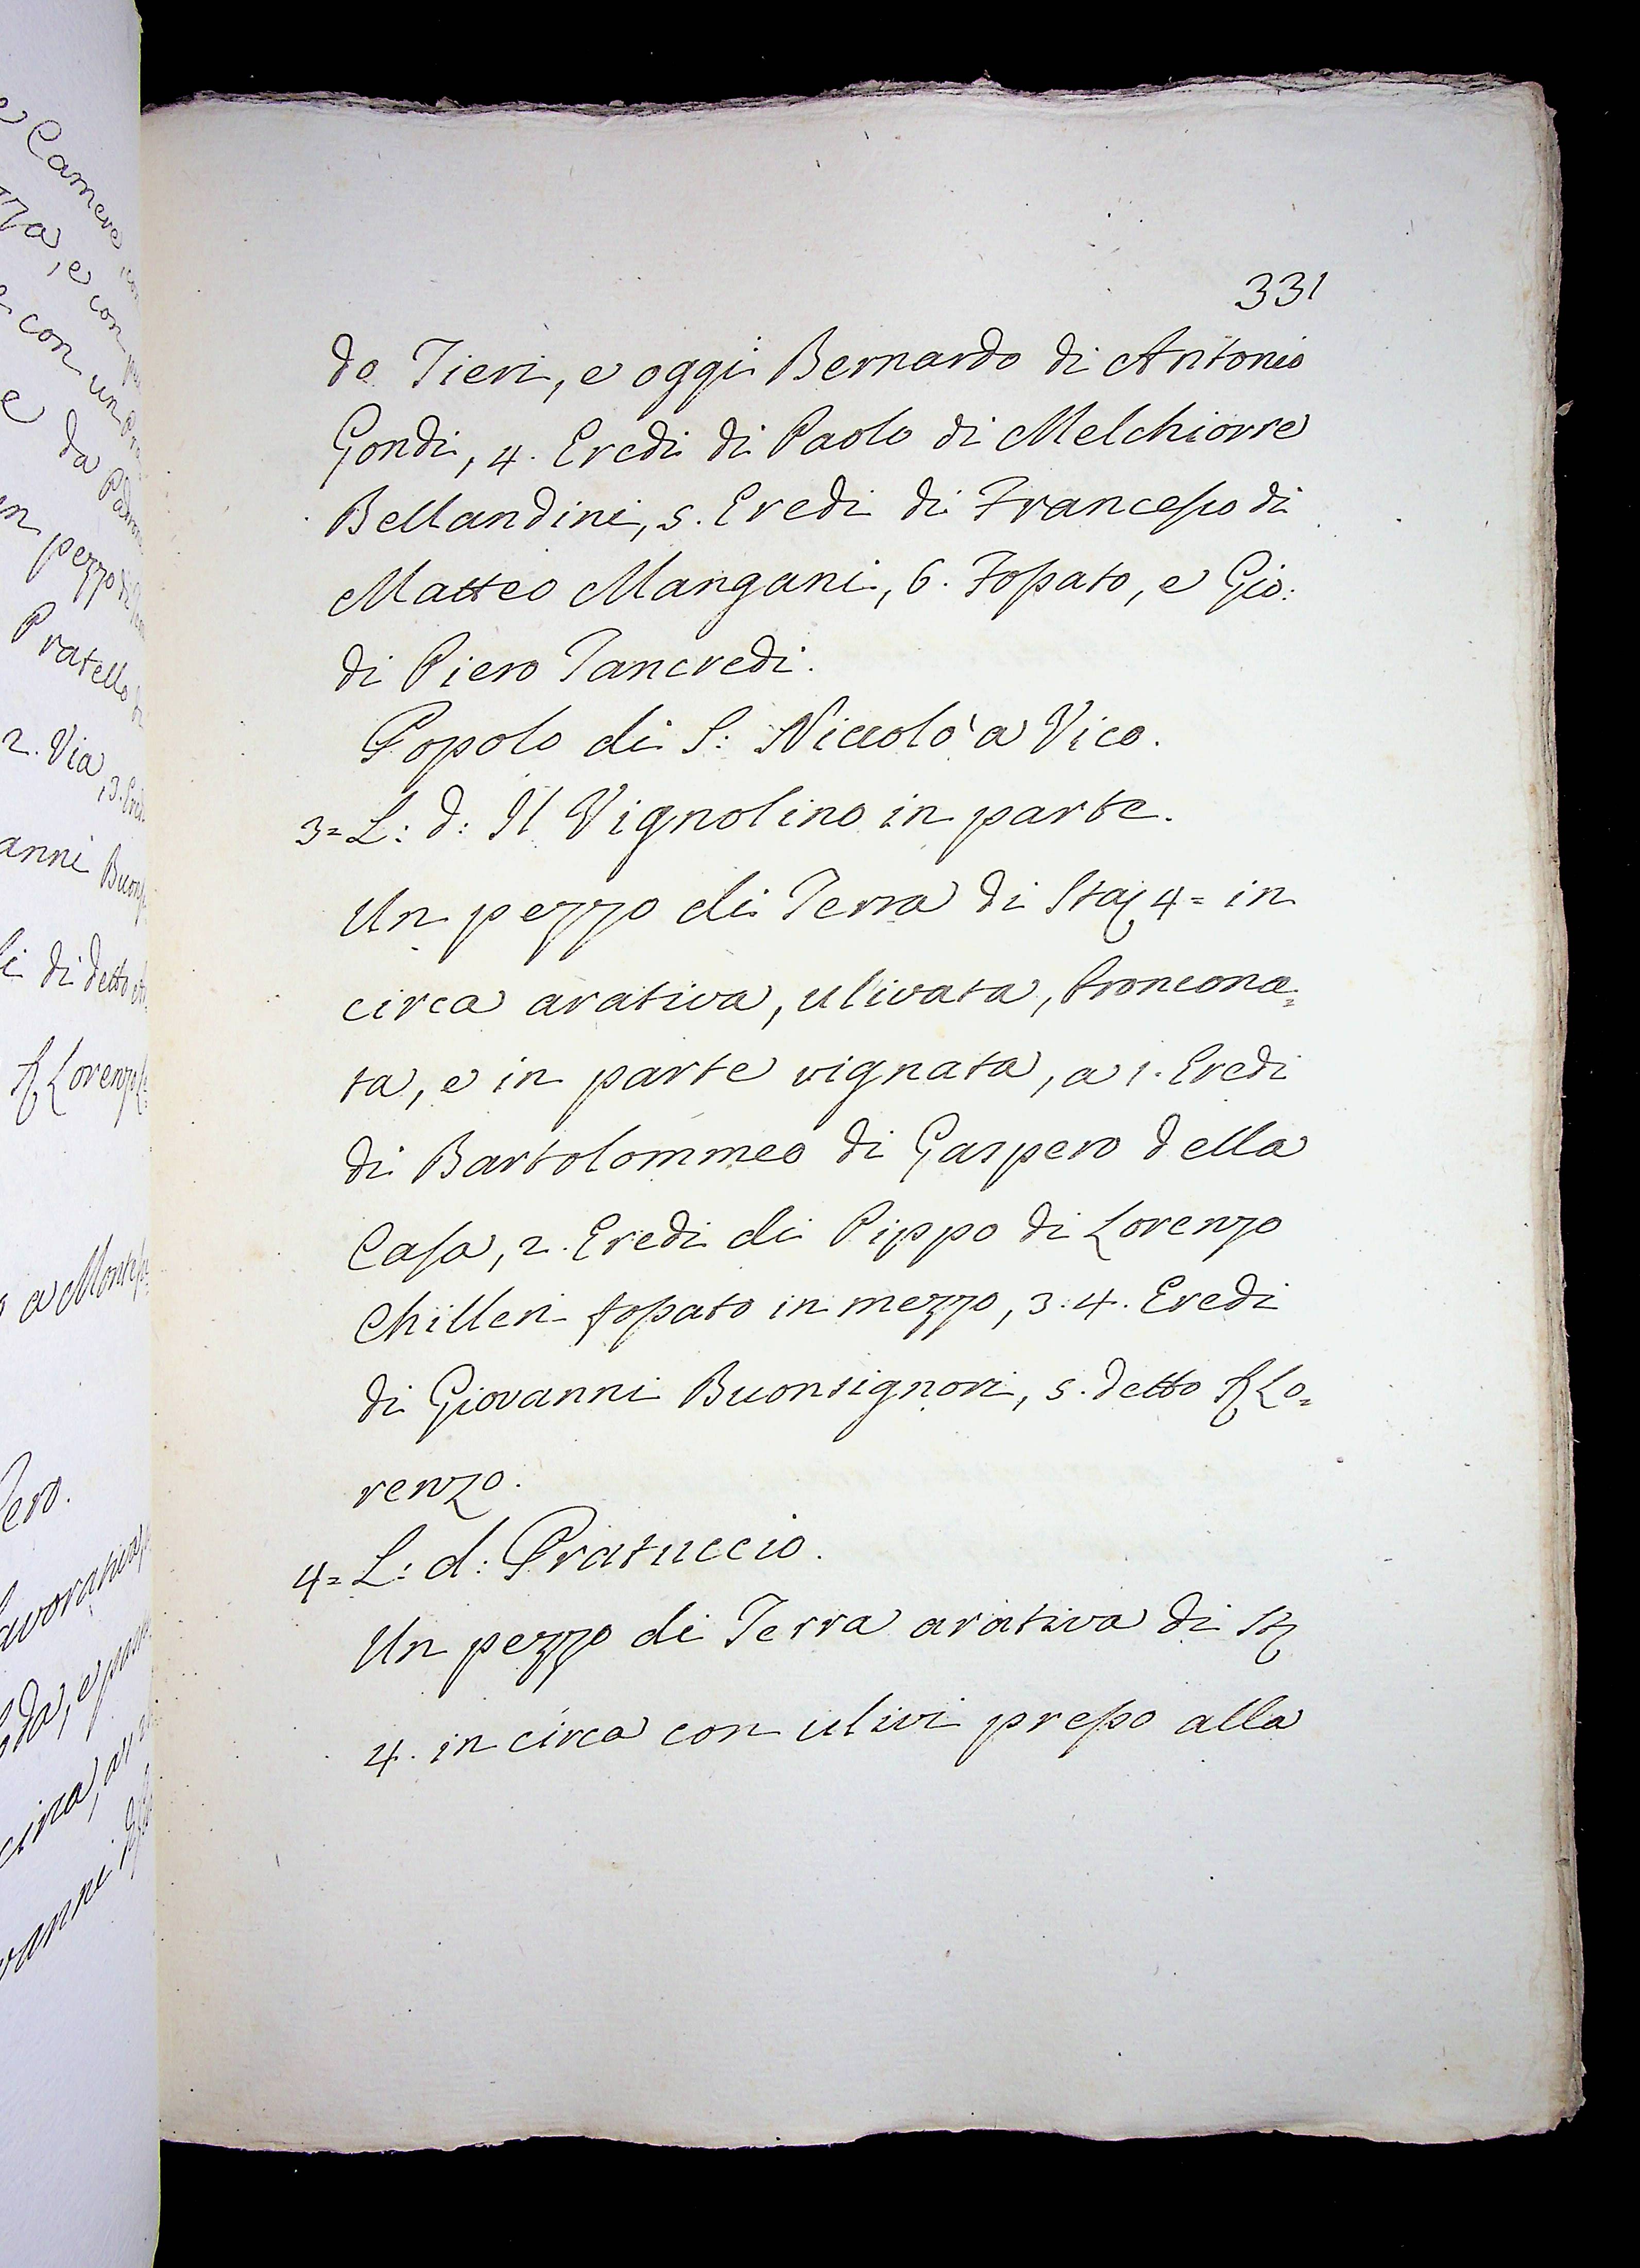 331
de Tieri, e oggi Bernardo di Antonio
Gondi, 4. Eredi di Paolo di Melchiorre
Bellandini, 5. Eredi di Francesco di
Matteo Mangani, 6. Fossato, e Gio:
di Piero Tancredi.
Popolo di S: Niccolò a Vico.
3= L: d: Il Vignolino in parte.
Un pezzo di Terra di Staj 4= in
circa arativa, ulivata, troncona=
ta, e in parte vignata, a 1. Eredi
di Bartolommeo di Gaspero della
Casa, 2. Eredi di Pippo di Lorenzo
Chilleri fossato in mezzo, 3. 4. Eredi
di Giovanni Buonsignori, 5. detto Lo=
renzo.
4= L: d: Pratuccio.
Un pezzo di Terra arativa di St
4. in circa con ulivi presso alla